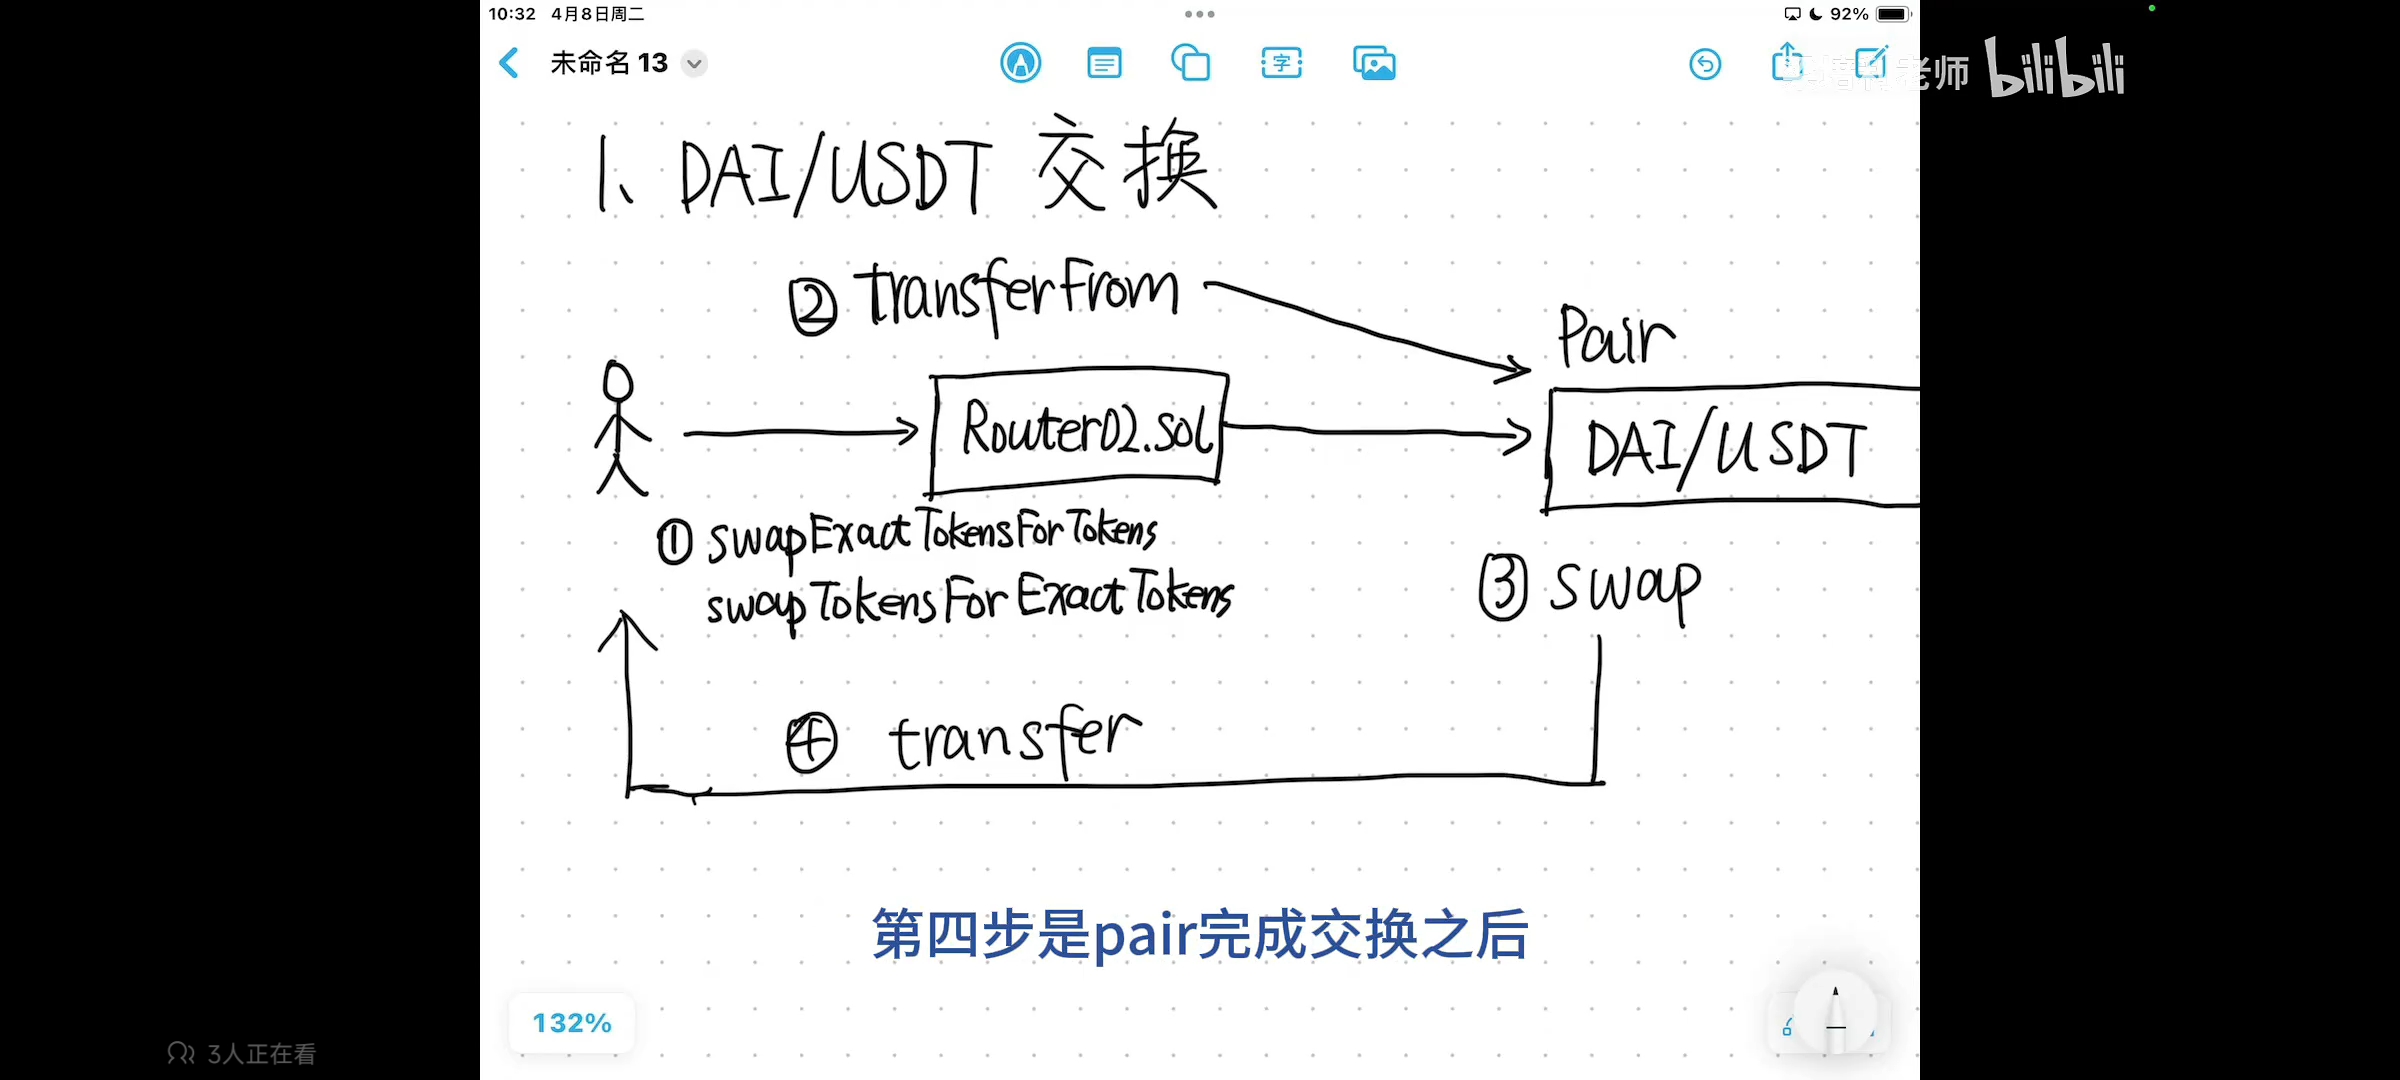 10:32 4月8日周二
92%
未命名 13
老师 bilibili
1、DAI/USDT 交換
② transferFrom
Pair
Router02.sol
DAI/USDT
① swapExactTokensForTokens
swapTokensForExactTokens
③ swap
④ transfer
第四步是pair完成交换之后
132%
3人正在看